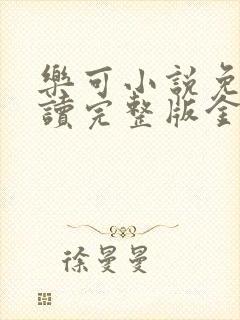 樂可小說免
讀完整版全
徐曼曼